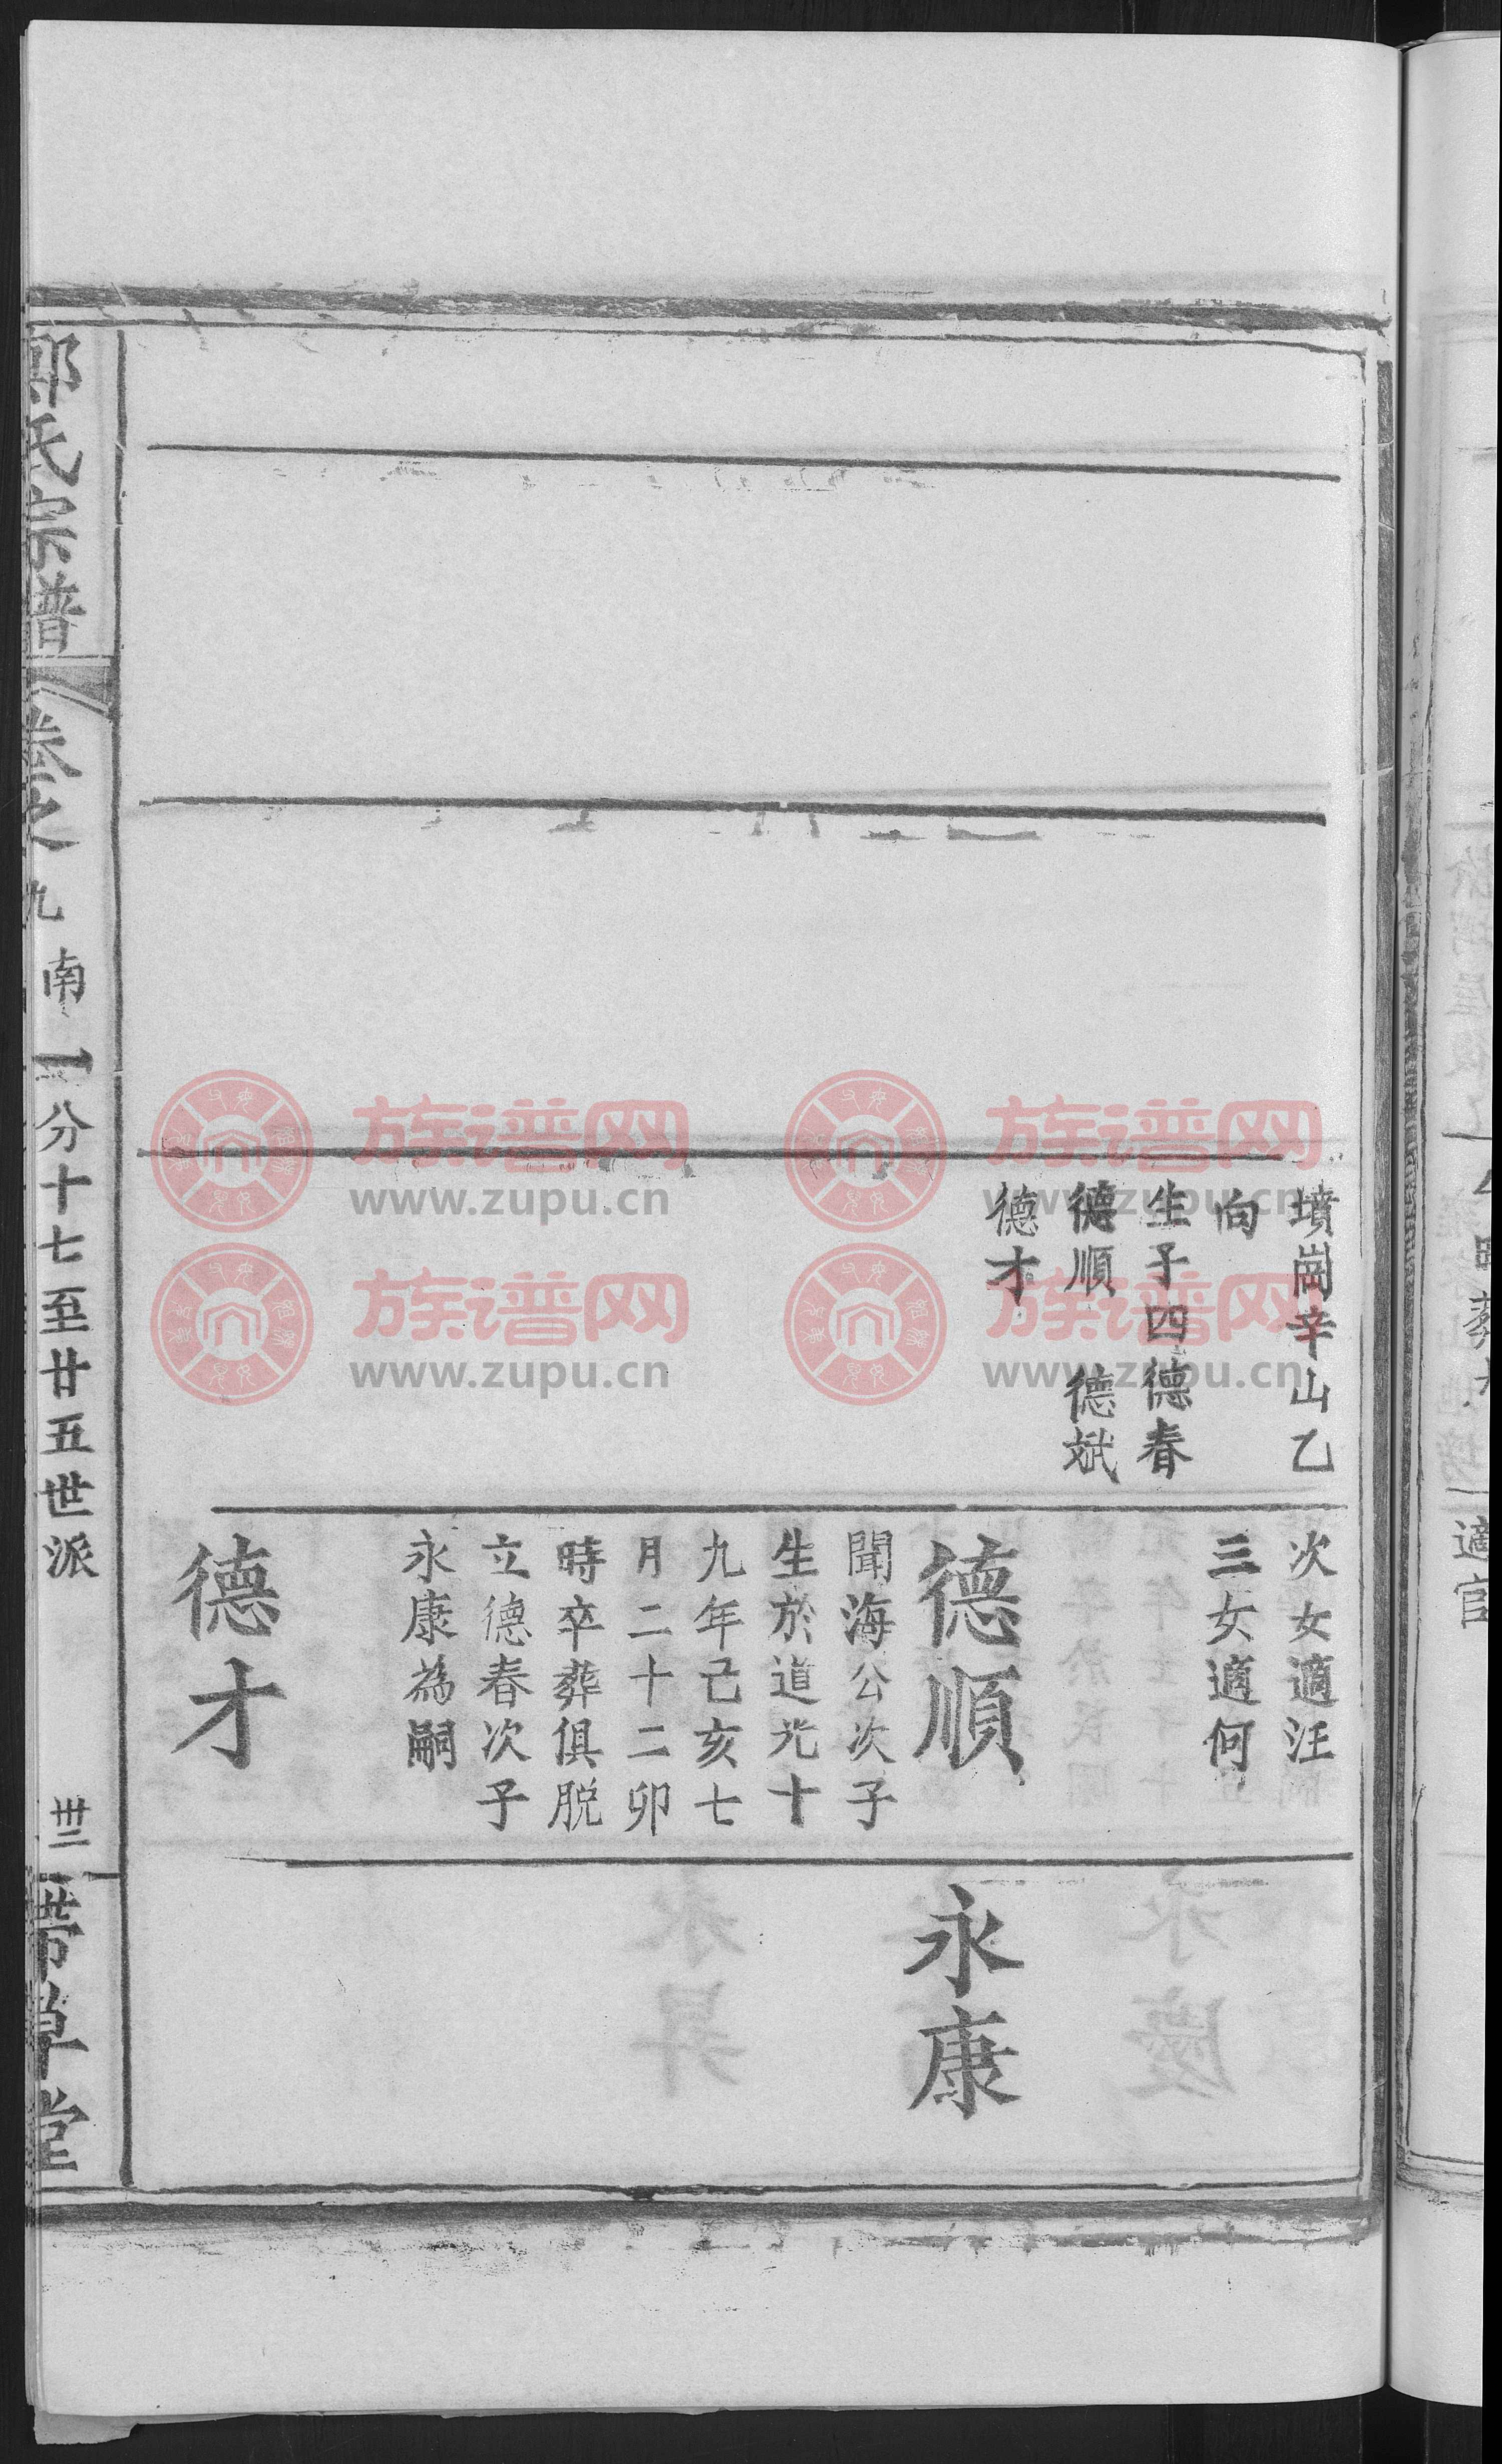 墳崗辛山乙
向
生子四德春
德順 德斌
德才
次女適汪
三女適何
德順
聞海公次子
生於道光十
九年己亥七
月二十二卯
時卒葬俱脱
立德春次子
永康為嗣
德才
永康
氏宗譜
卷之九
南一分十七至廿五世派
卅二
堂
適官
族谱网
www.zupu.cn
族谱网
www.zupu.cn
族谱网
www.zupu.cn
族谱网
www.zupu.cn